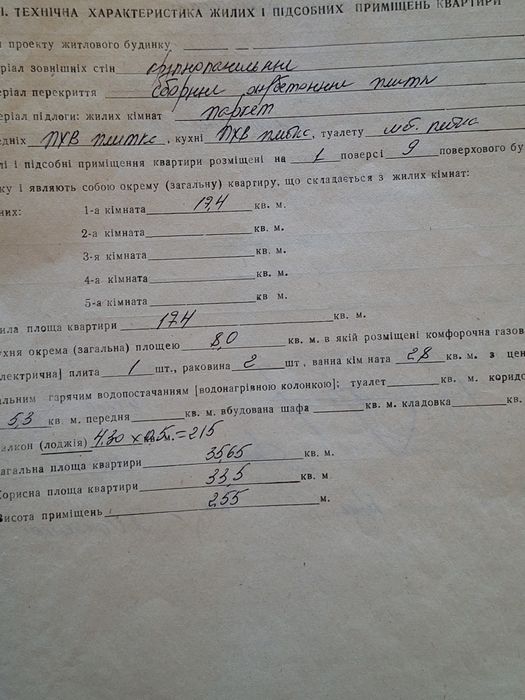 І. ТЕХНІЧНА ХАРАКТЕРИСТИКА ЖИЛИХ І ПІДСОБНИХ ПРИМІЩЕНЬ КВАРТИРИ
проекту житлового будинку
ріал зовнішніх стін крупнопанельний
еріал перекриття сборний плити
еріал підлоги: жилих кімнат паркет
едніх ПХВ плитка, кухні ПХВ плитка, туалету
лі і підсобні приміщення квартири розміщені на 1 поверсі 9 поверхового бу
ку і являють собою окрему (загальну) квартиру, що складається з жилих кімнат:
них: 1-а кімната 17,4 кв. м.
2-а кімната кв. м.
3-я кімната кв. м.
4-а кімната кв. м.
5-а кімната кв м.
ила площа квартири 17.4 кв. м.
ухня окрема (загальна) площею 8,0 кв. м. в якій розміщені комфорочна газов
лектрична] плита 1 шт., раковина 2 шт, ванна кім ната 2,8 кв. м. з цен
альним гарячим водопостачанням [водонагрівною колонкою]; туалет кв. м. коридо
5,3 кв м. передня кв. м. вбудована шафа кв. м. кладовка кв.
алкон (лоджія) 4.30 х 0.5 м. = 2.15
агальна площа квартири 35,65 кв. м.
Корисна площа квартири 33,5 кв. м
Висота приміщень 2,55 м.